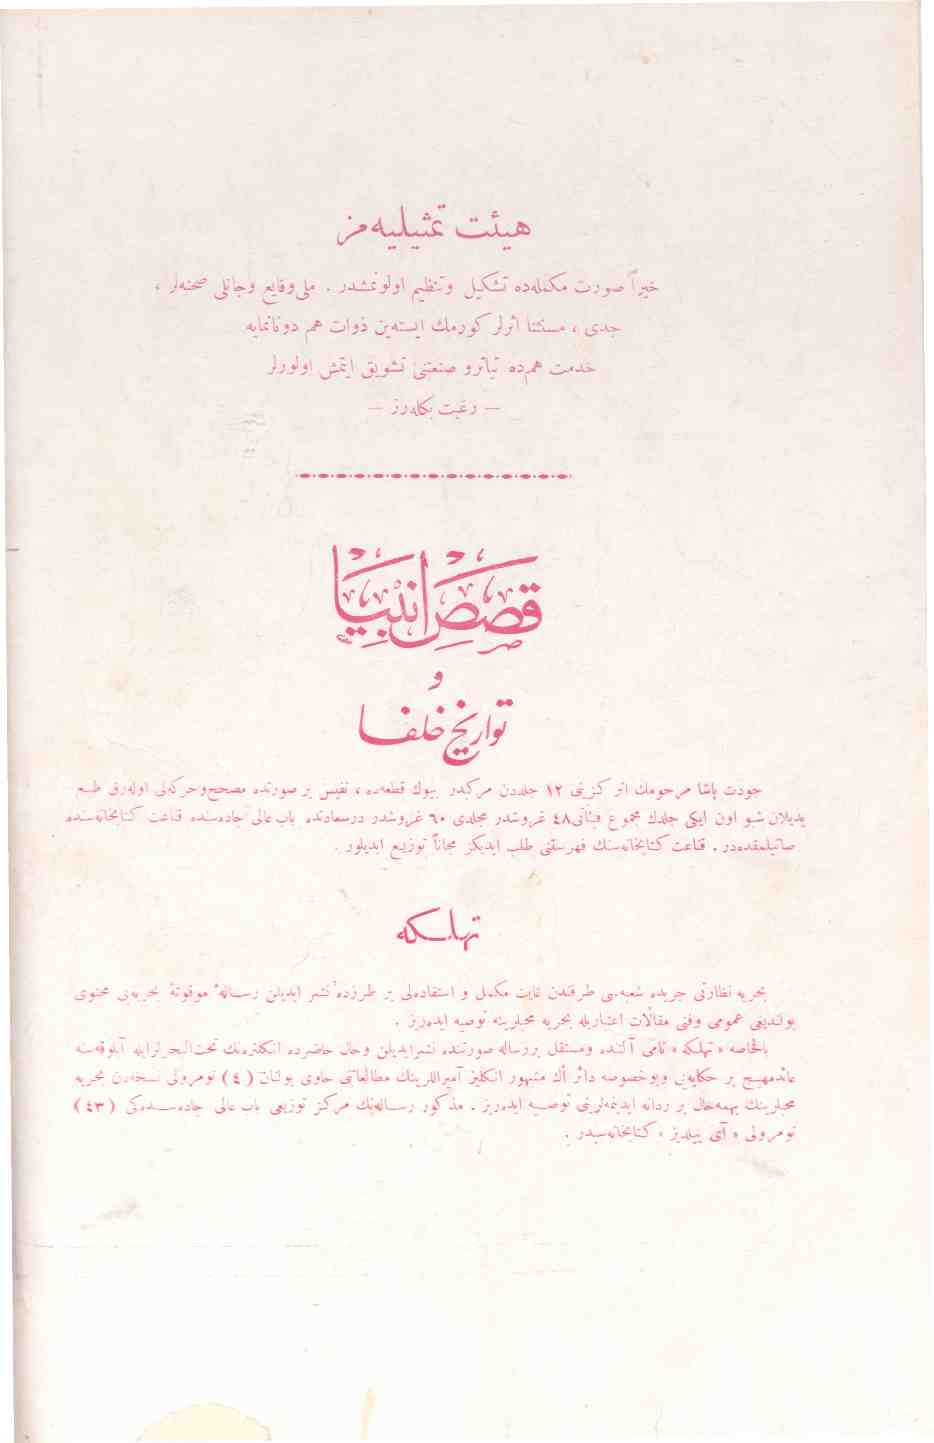 هيئت تمثيليه‌مز
خيراً صورت مكمله‌ده تشكيل وتنظيم اولونمشدر . ملی وقايع وجانلی صحنه‌لر ،
جدی ، مستثنا اثرلر كورمك ايسته‌ين ذوات هم دونانمايه
خدمت هم‌ده تياترو صنعتنی تشويق ايتمش اولورلر
— رغبت بكله‌رز —
قصص انبيا
و
تواريخ خلفا
جودت پاشا مرحومك اثر كزينی ١٢ جلددن مركبدر بيوك قطعه‌ده ، نفيس بر صورتده مصحح وحركه‌لی اوله‌رق طبع
يديلان شبو اون ايكی جلدك مجموع فيئاتی ٤٨ غروشدر مجلدی ٦٠ غروشدر درسعادتده باب عالی جاده‌سنده قناعت كتابخانه‌سنده
صاتيلمقده‌در . قناعت كتابخانه‌سنك فهرستنی طلب ايديكز مجاناً توزيع ايديلور .
تهلكه
بحريه نظارتی جريده شعبه‌سی طرفندن غايت مكمل و استفاده‌لی بر طرزده نشر ايديلن رسالهٔ موقوتهٔ بحريه‌يی محتوی
بولنديغی عمومی وفنی مقالات اعتباريله بحريه محبلرينه توصيه ايده‌رز .
بالخاصه « تهلكه » نامی آلتنده ومستقل بررساله صورتنده نشرايديلن وحال حاضرده انكلتره‌نك تحت‌البحرلرايله آبلوقه‌سنه
عائدمهيج بر حكايه‌يی وبوخصوصه دائر اك مشهور انكليز آميراللرينك مطالعاتنی حاوی بولنان ( ٤ ) نومرولی نسخه‌دن بحريه
محبلرينك بهمه‌حال بر ردانه ايدينمه‌لرينی توصيه ايده‌ريز . مذكور رساله‌نك مركز توزيعی باب عالی جاده‌سنده‌كی ( ٤٣ )
نومرولی « آی ييلديز » كتابخانه‌سيدر .